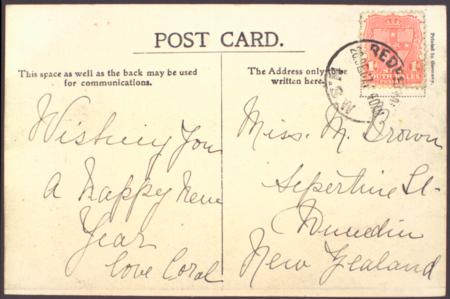 POST CARD.
This space as well as the back may be used
for communications.
The Address only to be
written here.
Printed in Germany.
Wishing You
A Happy New
Year
Love Coral
Miss. M. Brown
Sepertine St-
Dunedin
New Zealand